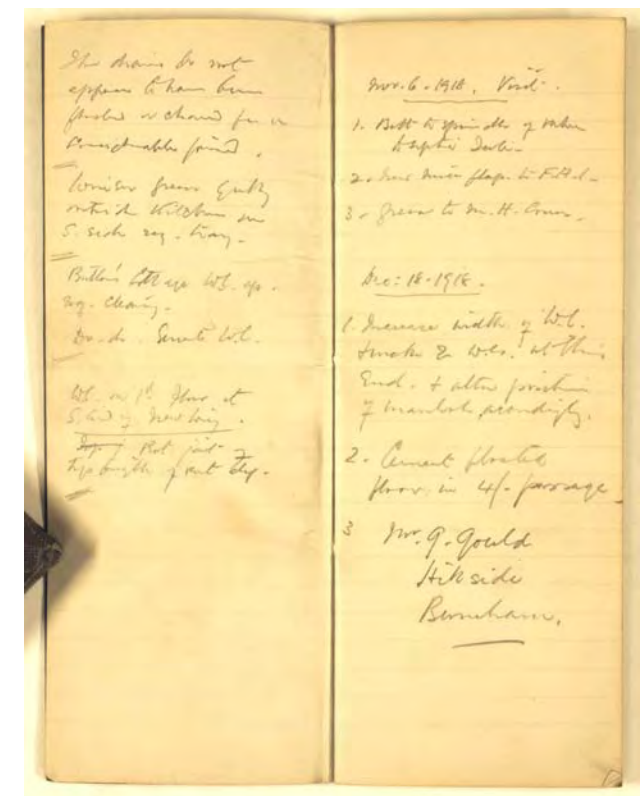 The drains do not
appear to have been
flushed or cleaned for a
considerable period.
grease gully
outside Kitchen on
S. side req.
Butler's Cottage W.C.
req. cleaning.
Do. do. Servants W.C.
W.C. on 1st floor at
S. end of New Wing.
joint of
top length of vent
Nov. 6. 1918. Visit.
1. Bolt to spindle of valve
to septic
2. New mica flap to F.A.I.
3. to M. H. Cover.
Dec: 18. 1918.
1. Increase width of W.C.
& make 2 W.Cs. at this
End. & alter position
of manhole accordingly.
2. Cement floated
floor in passage
3 Mr. G. Gould
Hillside
Burnham.